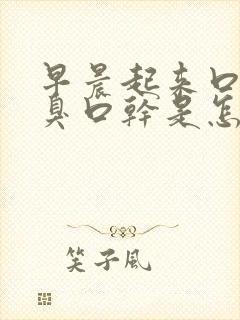 早晨起来口
臭口幹是怎
笑子风